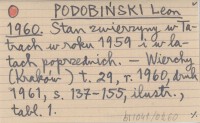 PODOBIŃSKI Leon
1960. Stan zwierzyny w Ta-
trach w roku 1959 i w la-
tach poprzednich. - Wierchy
(Kraków) t. 29, r. 1960, druk
1961, s. 137-155, ilustr.,
tabl. 1.